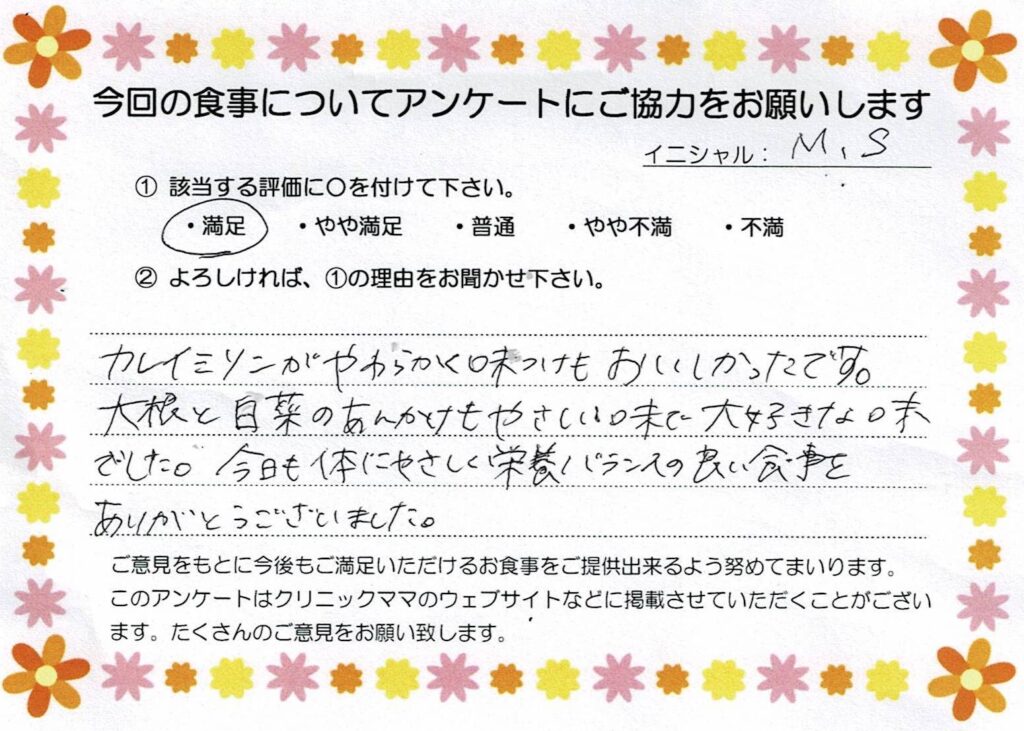 今回の食事についてアンケートにご協力をお願いします
イニシャル： M、S
① 該当する評価に〇を付けて下さい。
・満足 ・やや満足 ・普通 ・やや不満 ・不満
② よろしければ、①の理由をお聞かせ下さい。
カレイミリンがやわらかく味つけもおいしかったです。
大根と白菜のあんかけもやさしい味で大好きな味
でした。今日も体にやさしく栄養バランスの良い食事を
ありがとうございました。
ご意見をもとに今後もご満足いただけるお食事をご提供出来るよう努めてまいります。
このアンケートはクリニックママのウェブサイトなどに掲載させていただくことがござい
ます。たくさんのご意見をお願い致します。